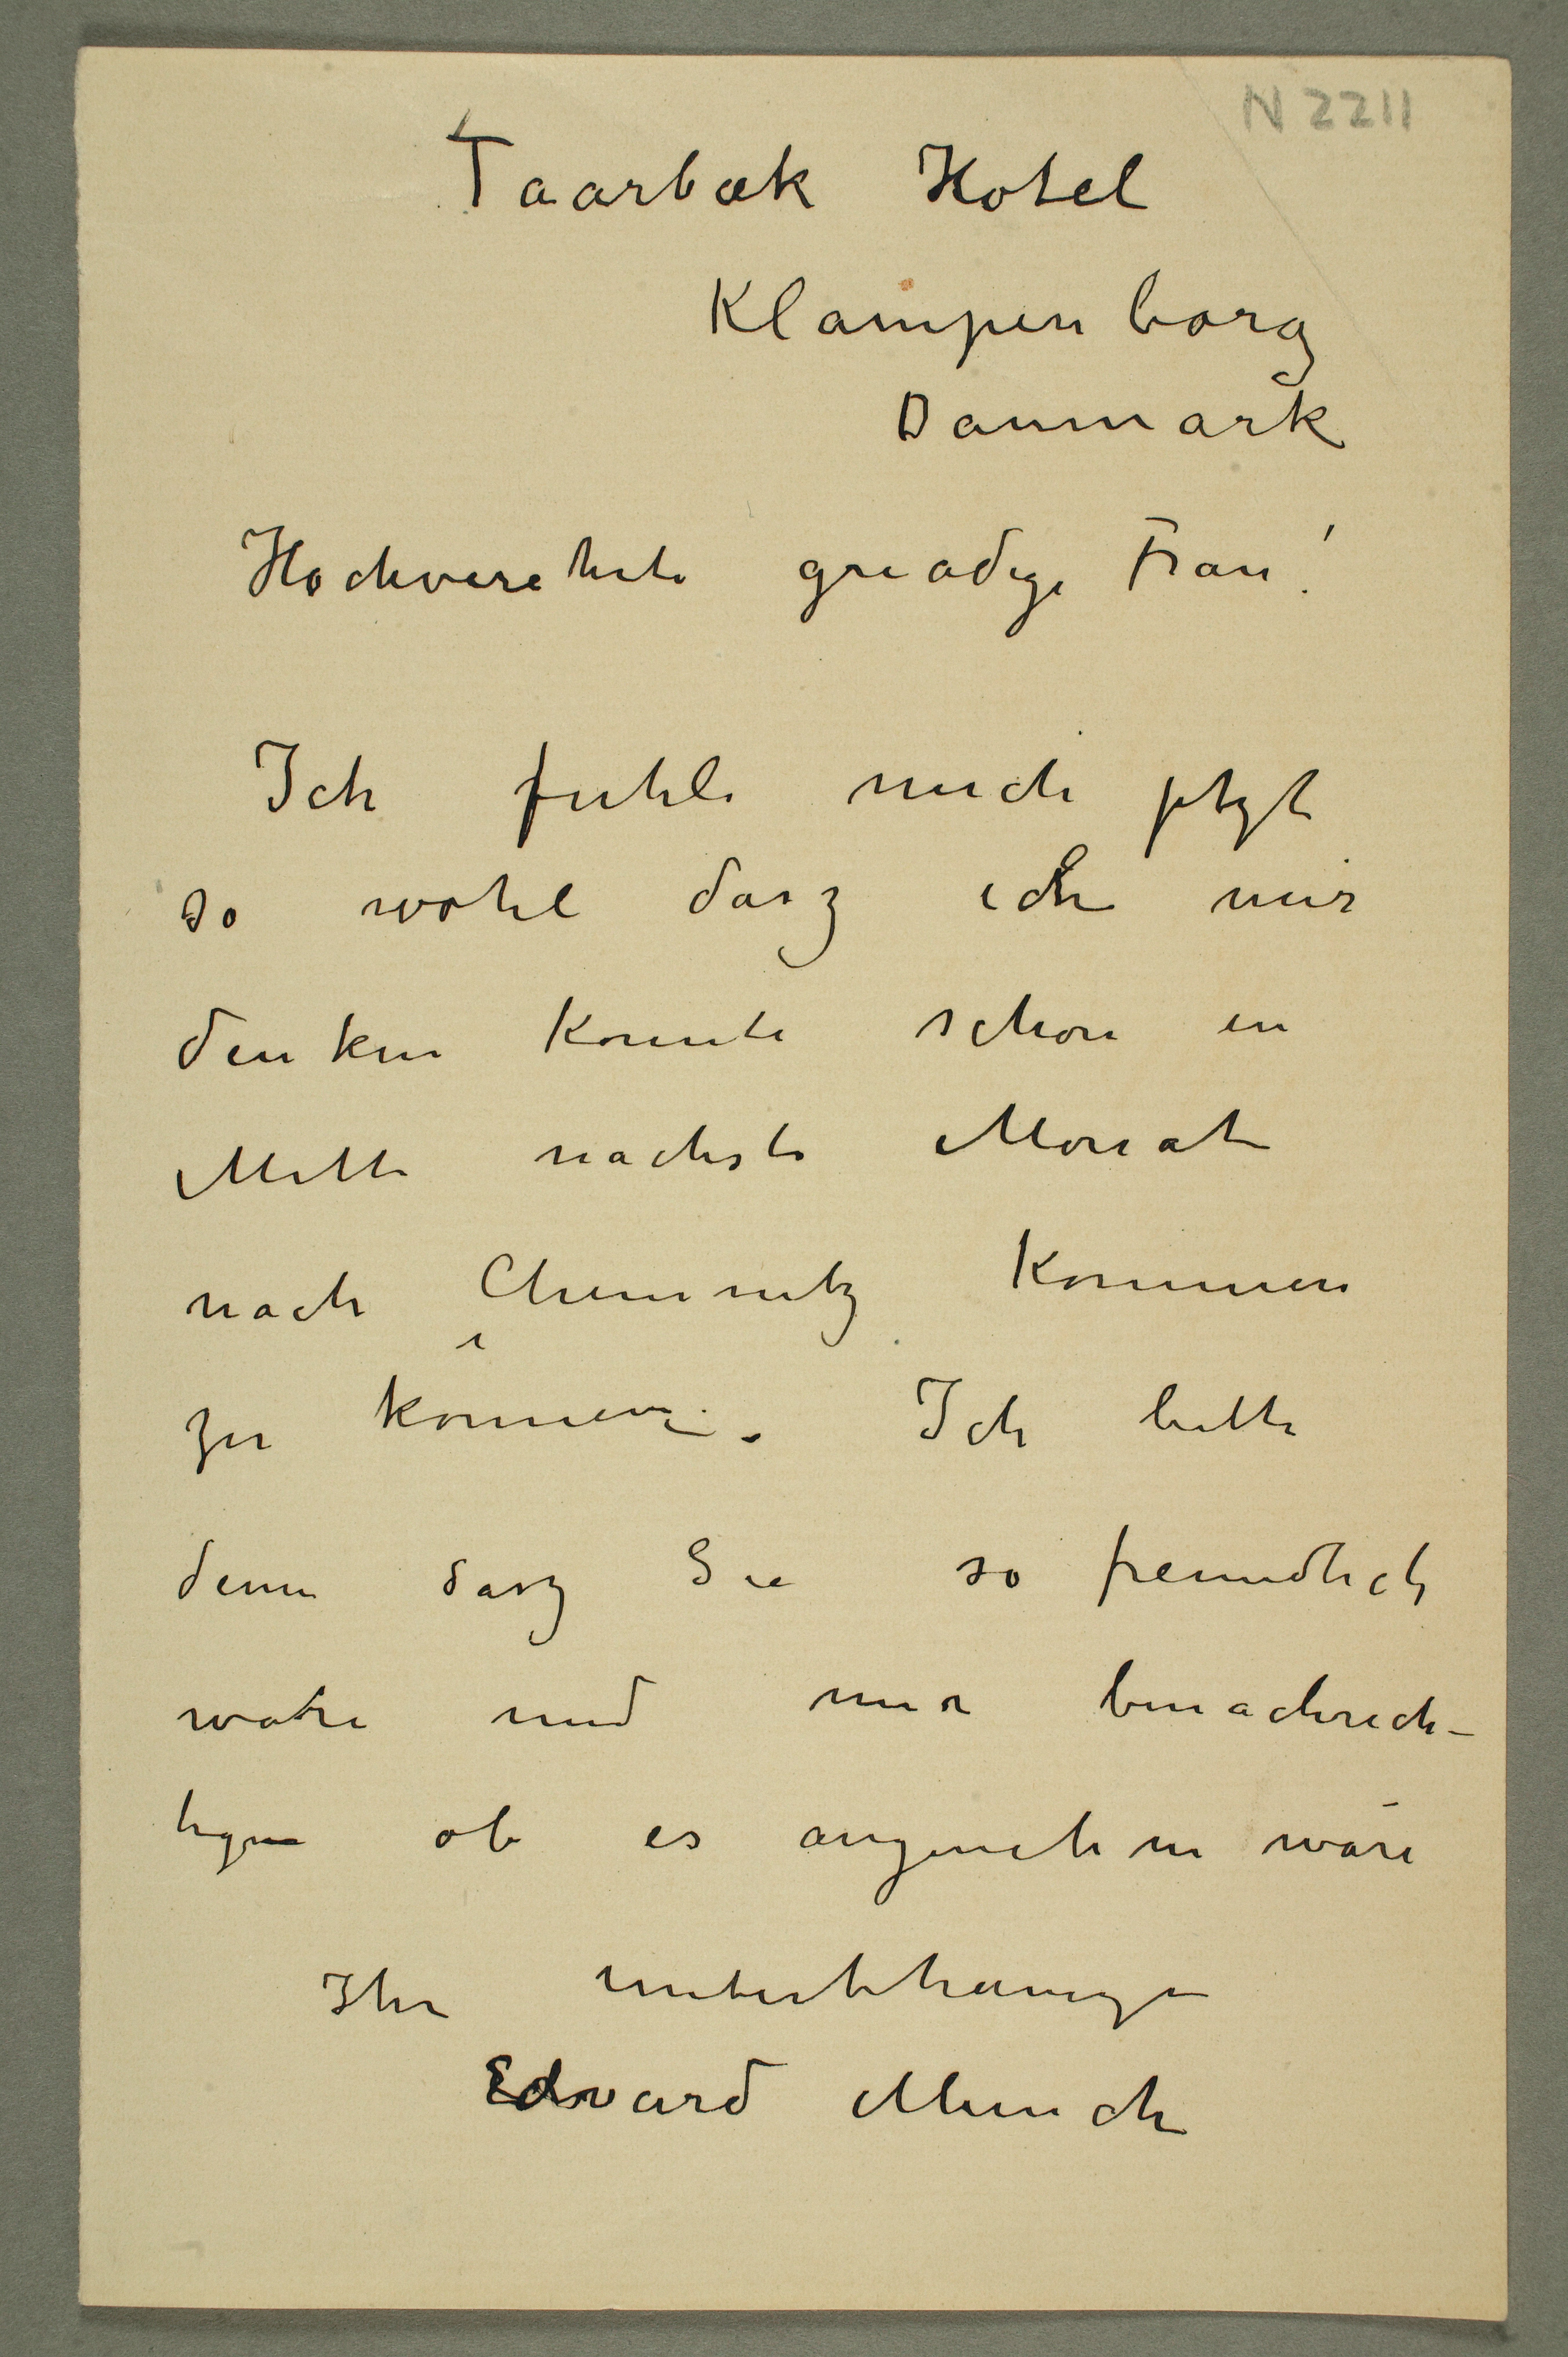 N 2211
Taarbæk Hotel
Klampenborg
Danmark
Hochverehrte gnadige Frau!
Ich fuhle mich jetzt
so wohl dasz ich mir
denken konnte schon in
Mitte nachste Monat
nach Chemnitz kommen
zu können. Ich bitte
denn dasz Sie so freundlich
ware und mir benachrich-
tigen ob es angenehm wäre
Ihr
Edvard Munch